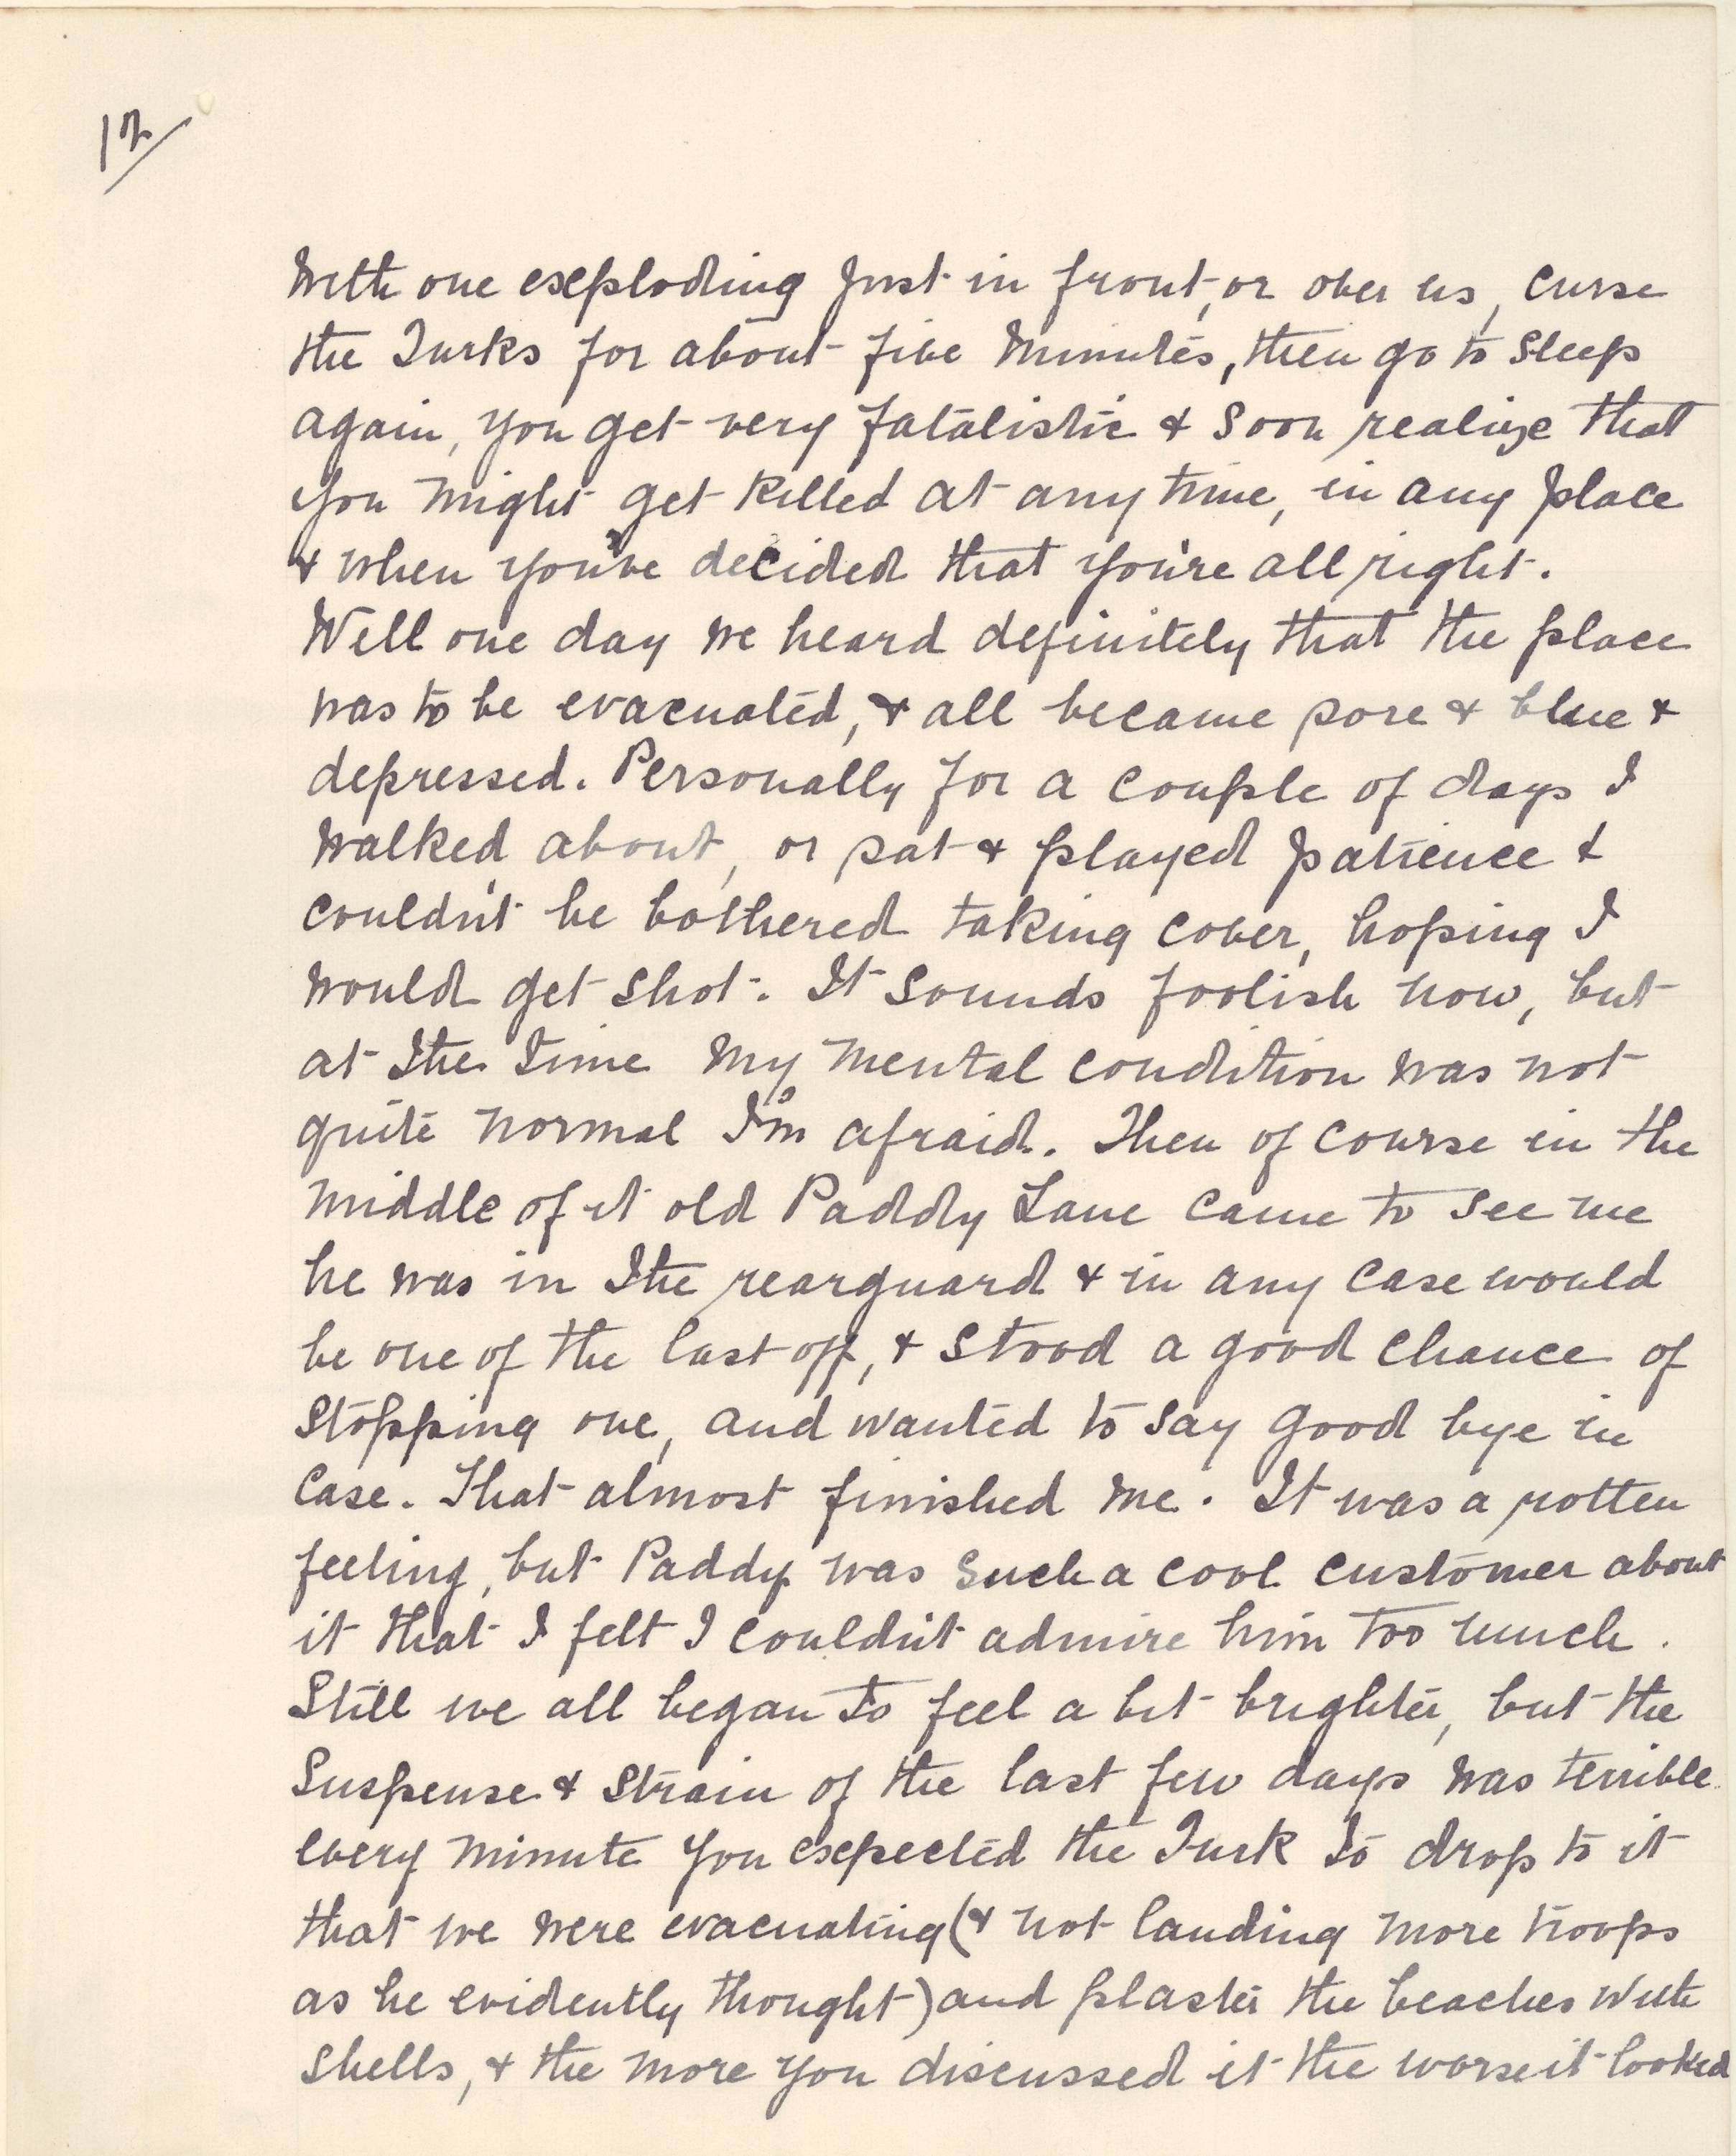 12/
with one exploding just in front, or over us, curse
the Turks for about five minutes, then go to sleep
again, you get very fatalistic & soon realize that
you might get killed at any time, in any place
& when you've decided that you're all right.
Well one day we heard definitely that the place
was to be evacuated, & all became sore & blue &
depressed. Personally for a couple of days I
walked about, or sat & played patience &
couldn't be bothered taking cover, hoping I
would get shot. It sounds foolish now, but
at the time my mental condition was not
quite normal I'm afraid. Then of course in the
middle of it old Paddy Lane came to see me
he was in the rearguard & in any case would
be one of the last off, & stood a good chance of
stopping one, and wanted to say good bye in
case. That almost finished me. It was a rotten
feeling, but Paddy was such a cool customer about
it that I felt I couldn't admire him too much.
Still we all began to feel a bit brighter, but the
suspense & strain of the last few days was terrible
every minute you expected the Turk to drop to it
that we were evacuating (& not landing more troops
as he evidently thought) and plaster the beaches with
shells, & the more you discussed it the worse it looked